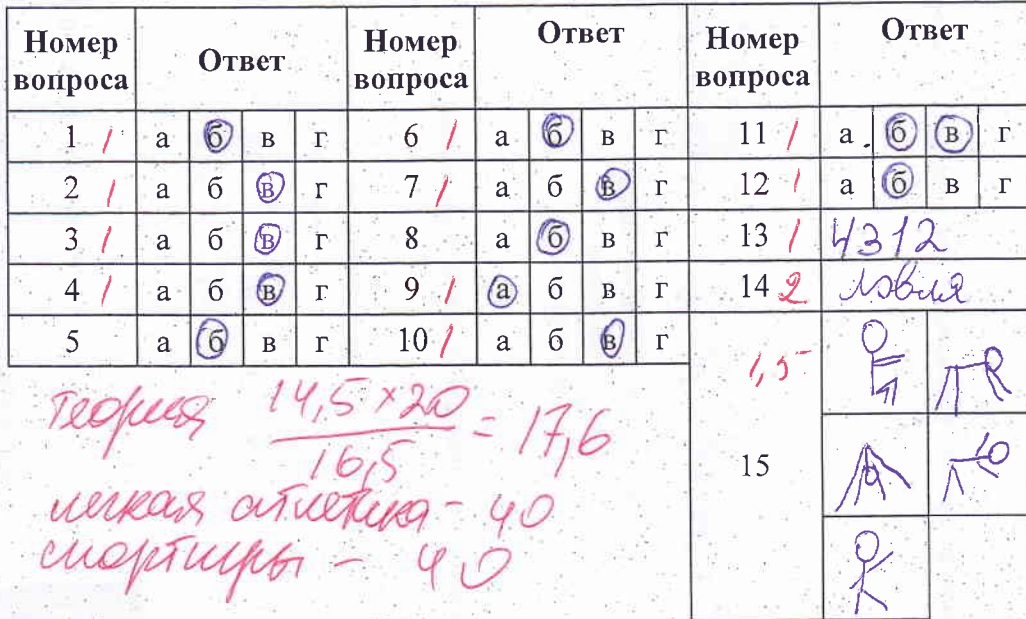 Номер вопроса Ответ Номер вопроса Ответ Номер вопроса Ответ
1 / а б в г 6 / а б в г 11 / а б в г
2 / а б в г 7 / а б в г 12 / а б в г
3 / а б в г 8 а б в г 13 / 4312
4 / а б в г 9 / а б в г 14 2 ловля
5 а б в г 10 / а б в г
15 1,5
теория 14,5 × 20 / 16,5 = 17,6
легкая атлетика - 40
спортигры - 40